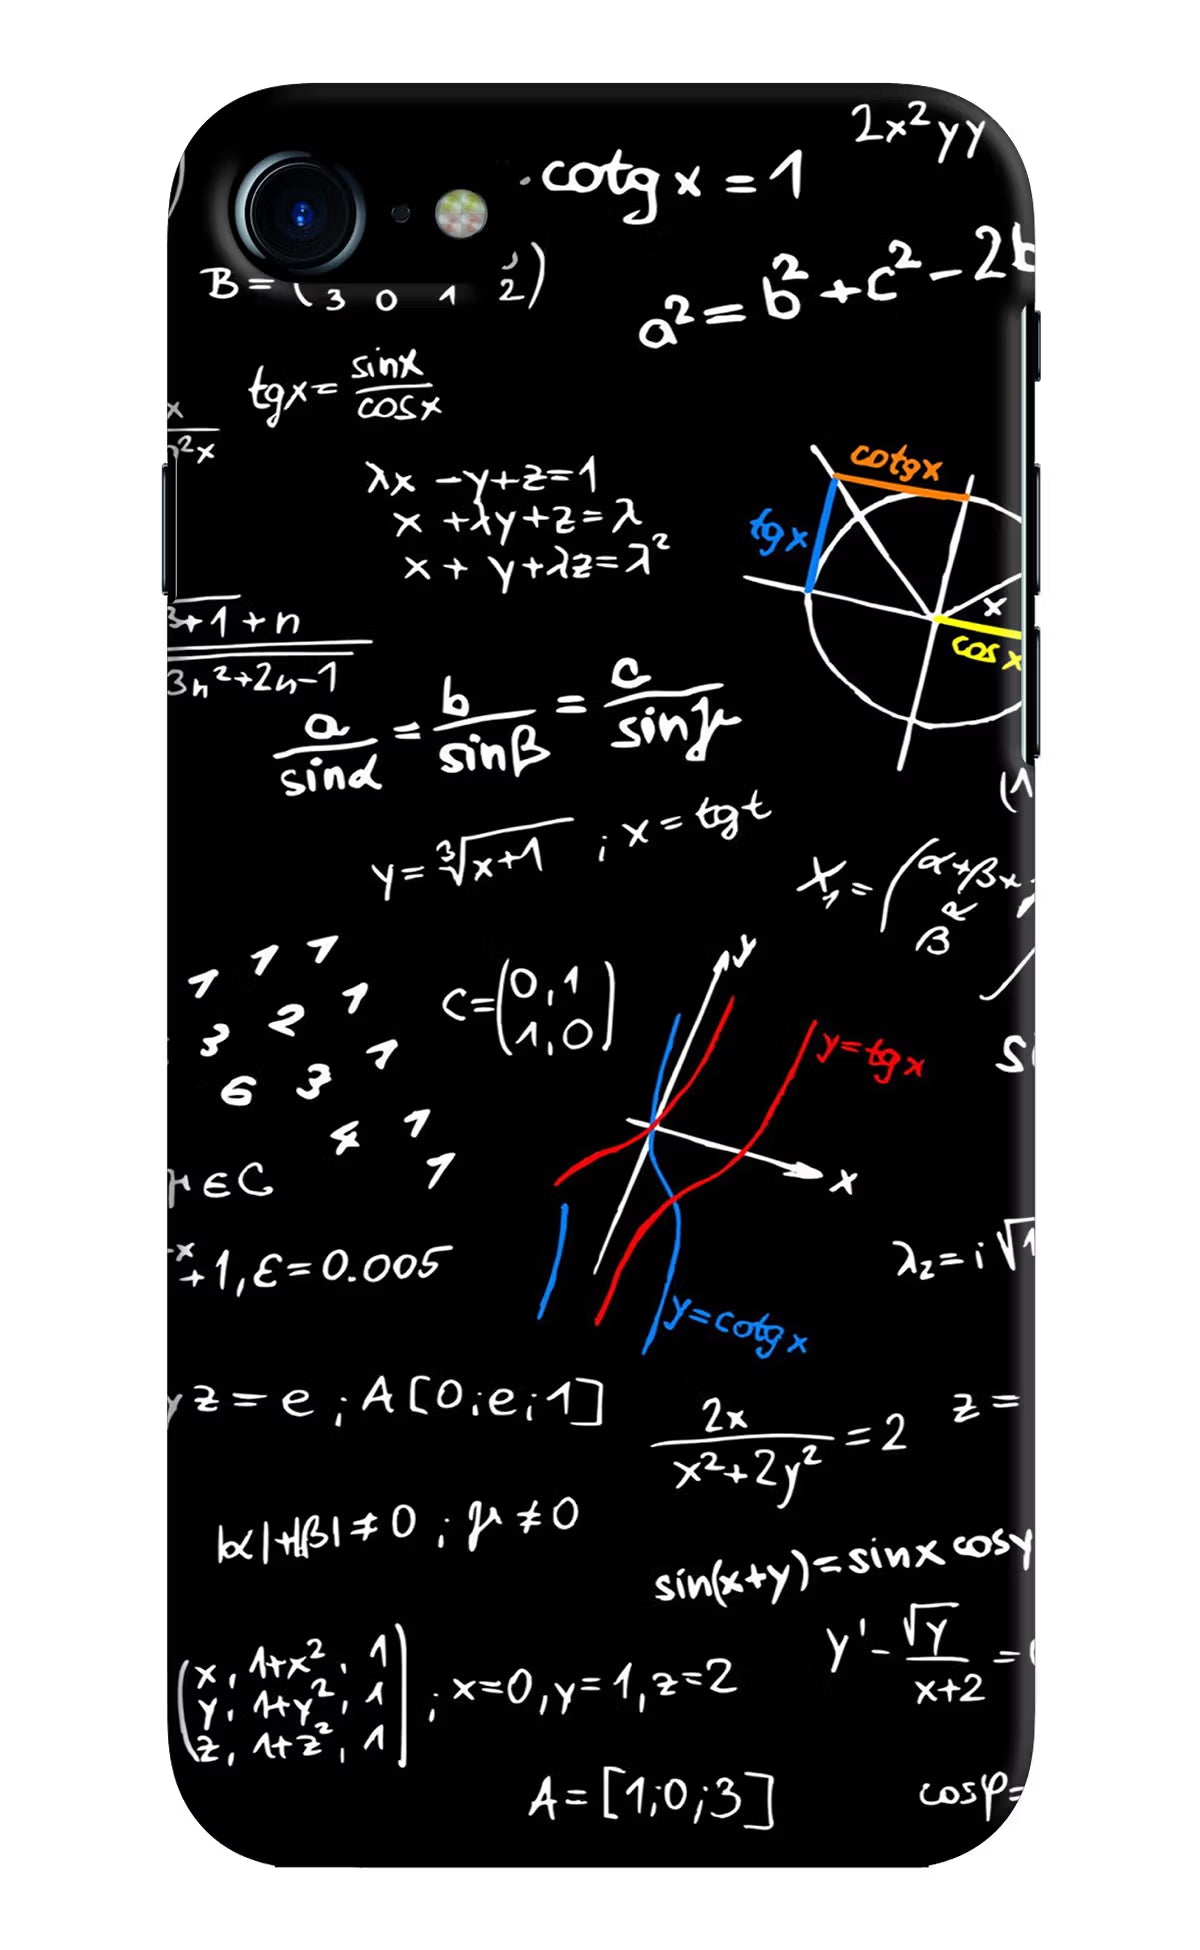 2x²yy
cotg x = 1
a² = b² + c² - 2b
B = ( 3 0 1 2 )
tgx = sinx / cosx
x
n²x
λx - y + z = 1
x + λy + z = λ
x + y + λz = λ²
cotgx
tgx
x
cos x
3+1 + n
3n²+2n-1
a / sinα = b / sinβ = c / sinγ
y = ∛x+1 ; x = tgt
(1
X₁ = (α+β+
β R
1 1 1
3 2 1
6 3 1
4 1
1
C = (0,1
1,0)
y
y=tgx
x
y=cotgx
∈C
-x
+1, ε = 0.005
λ₂ = i√1
yz = e ; A[0;e;1]
2x / x²+2y² = 2
z =
|α|+|β| ≠ 0 ; μ ≠ 0
sin(x+y) = sinx cosy
y' - √y / x+2 =
(x, 1+x², 1
y, 1+y², 1
z, 1+z², 1) ; x=0, y=1, z=2
A = [1;0;3]
cosφ=